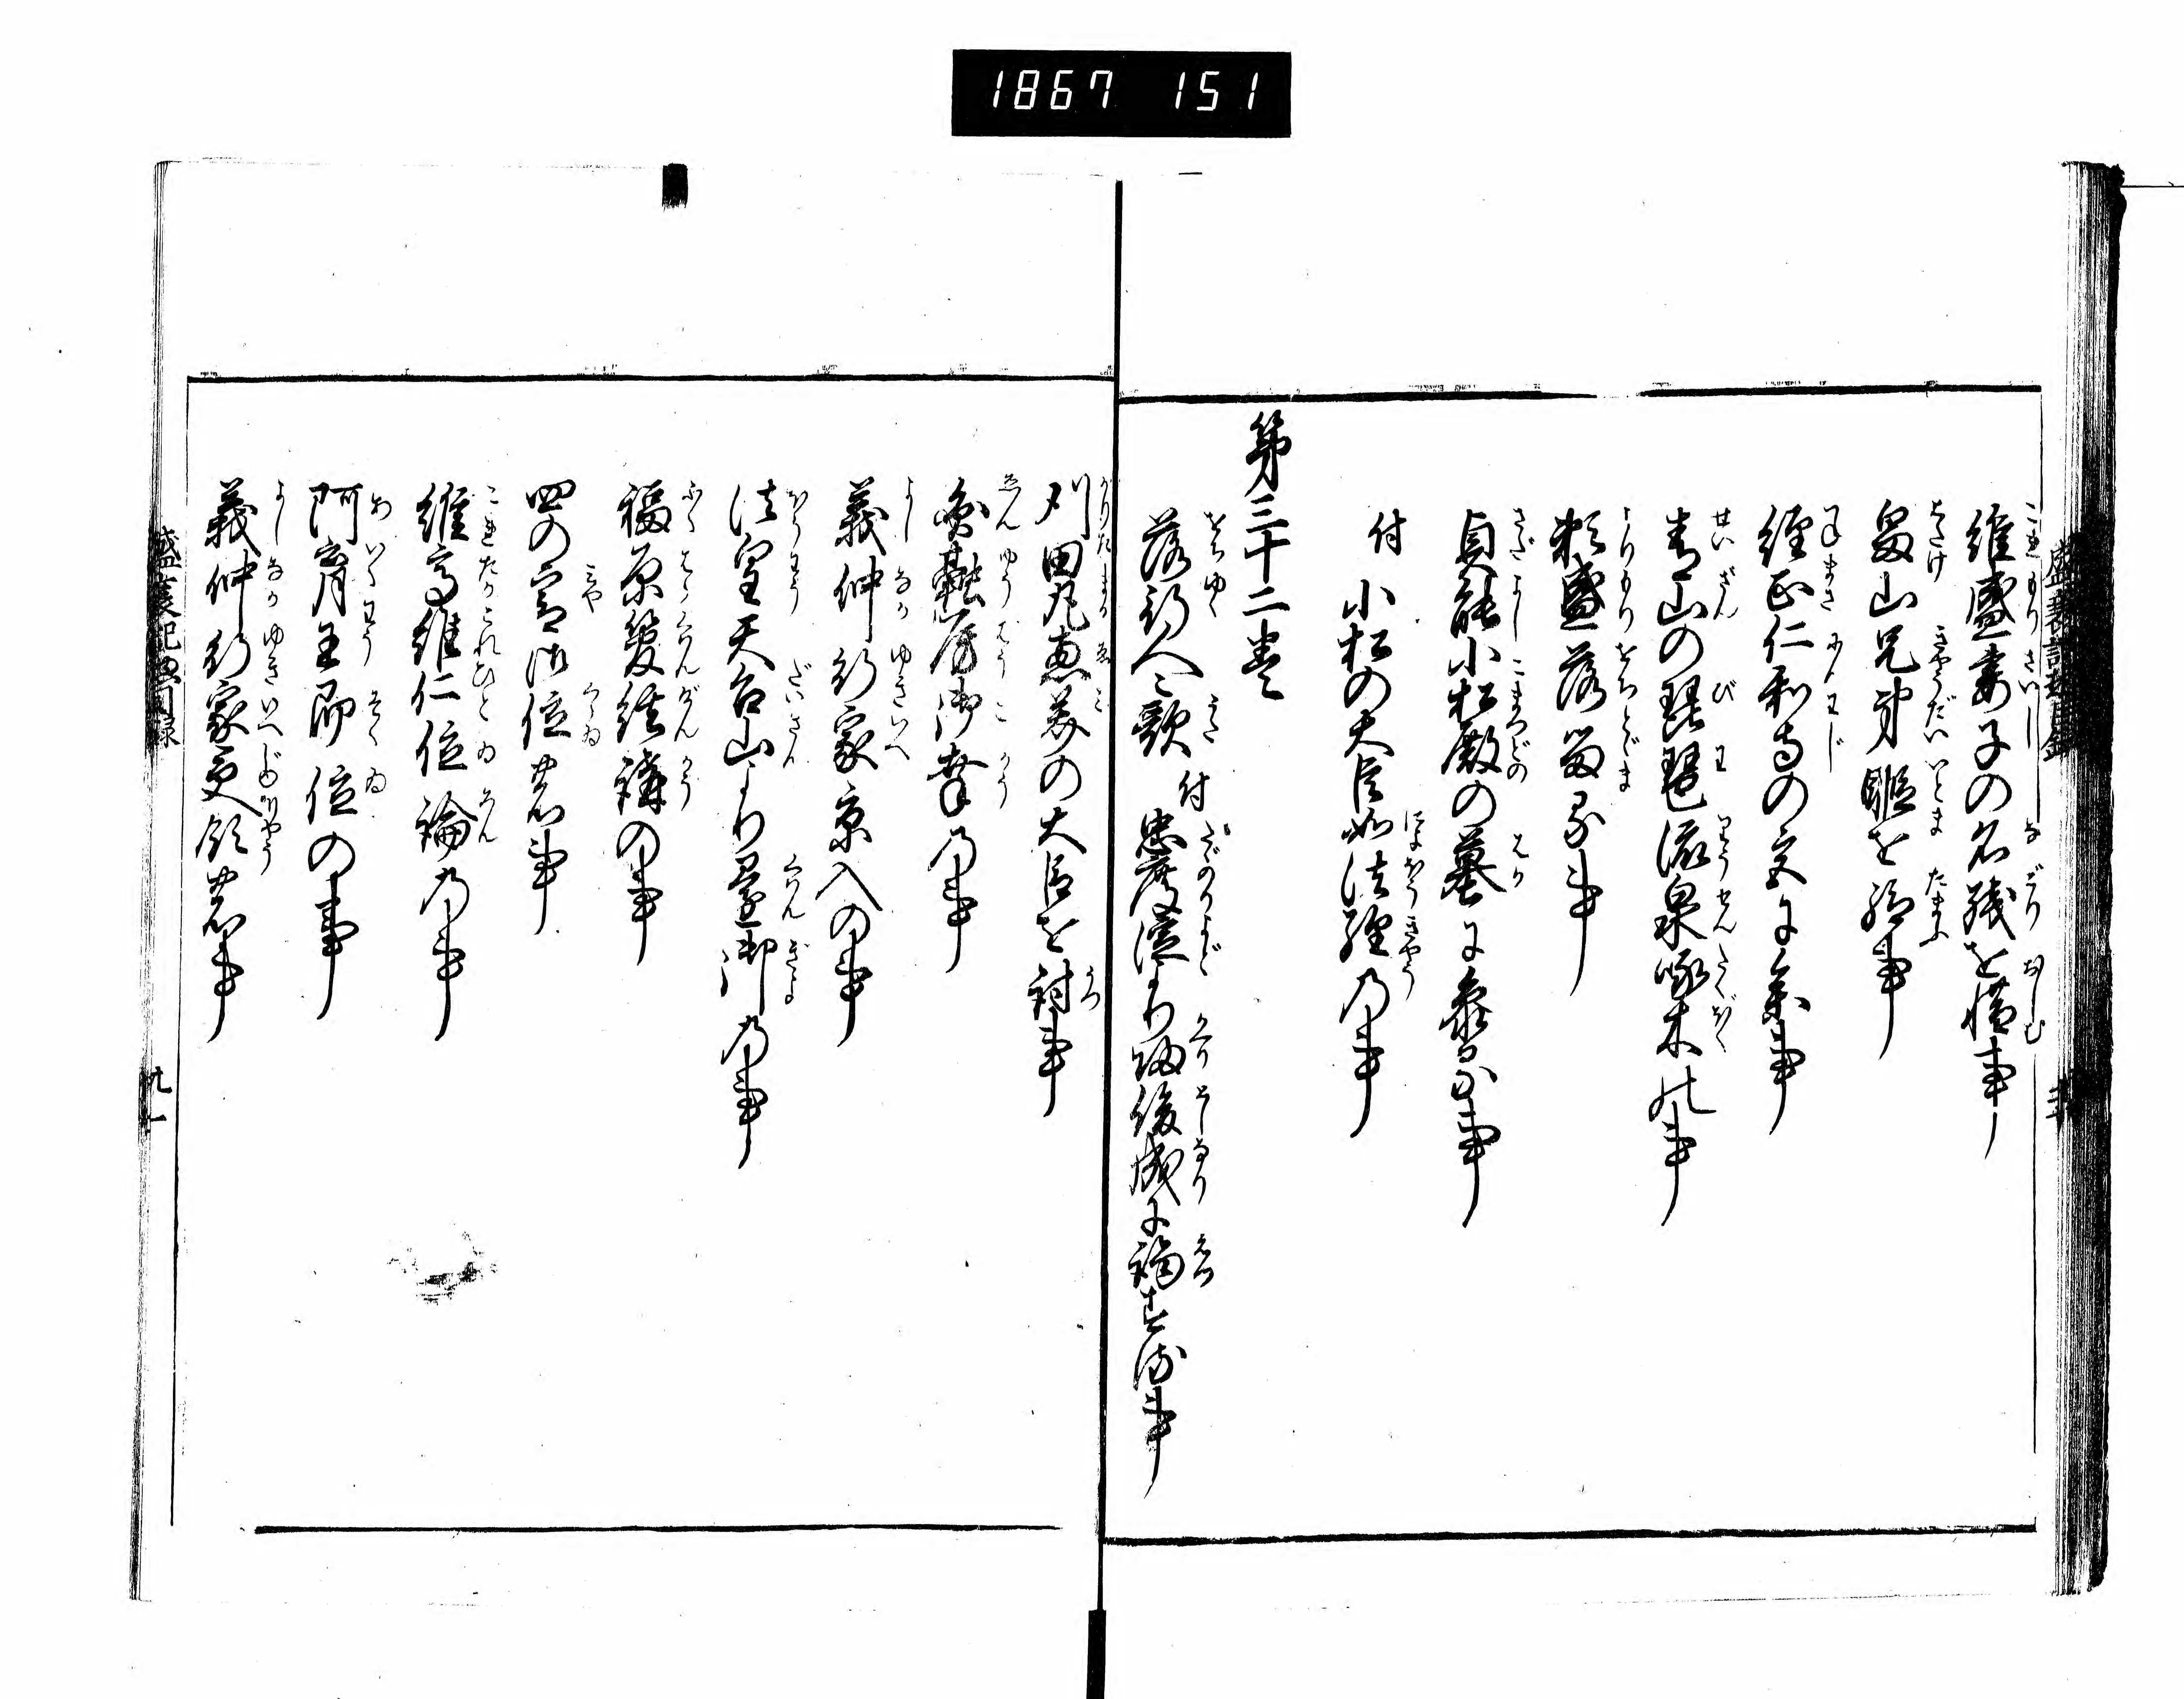 1867 151
維盛妻子の名残を惜事
畠山兄弟暇を給事
経正仁和寺の宮に参事
青山の琵琶流泉啄木の事
頼盛落留る事
貞能小松殿の墓に参る事
付 小松の大臣如法経の事
第三十二巻
落行人々歌 付 忠度淀より帰俊成に謁する事
刈田丸恵美の大臣を討事
円融房御幸の事
義仲行家京入の事
法皇天台山より還御の事
福原管絃講の事
四の宮御位の事
維高維仁位論の事
阿育王即位の事
義仲行家受領の事
盛衰記惣目録